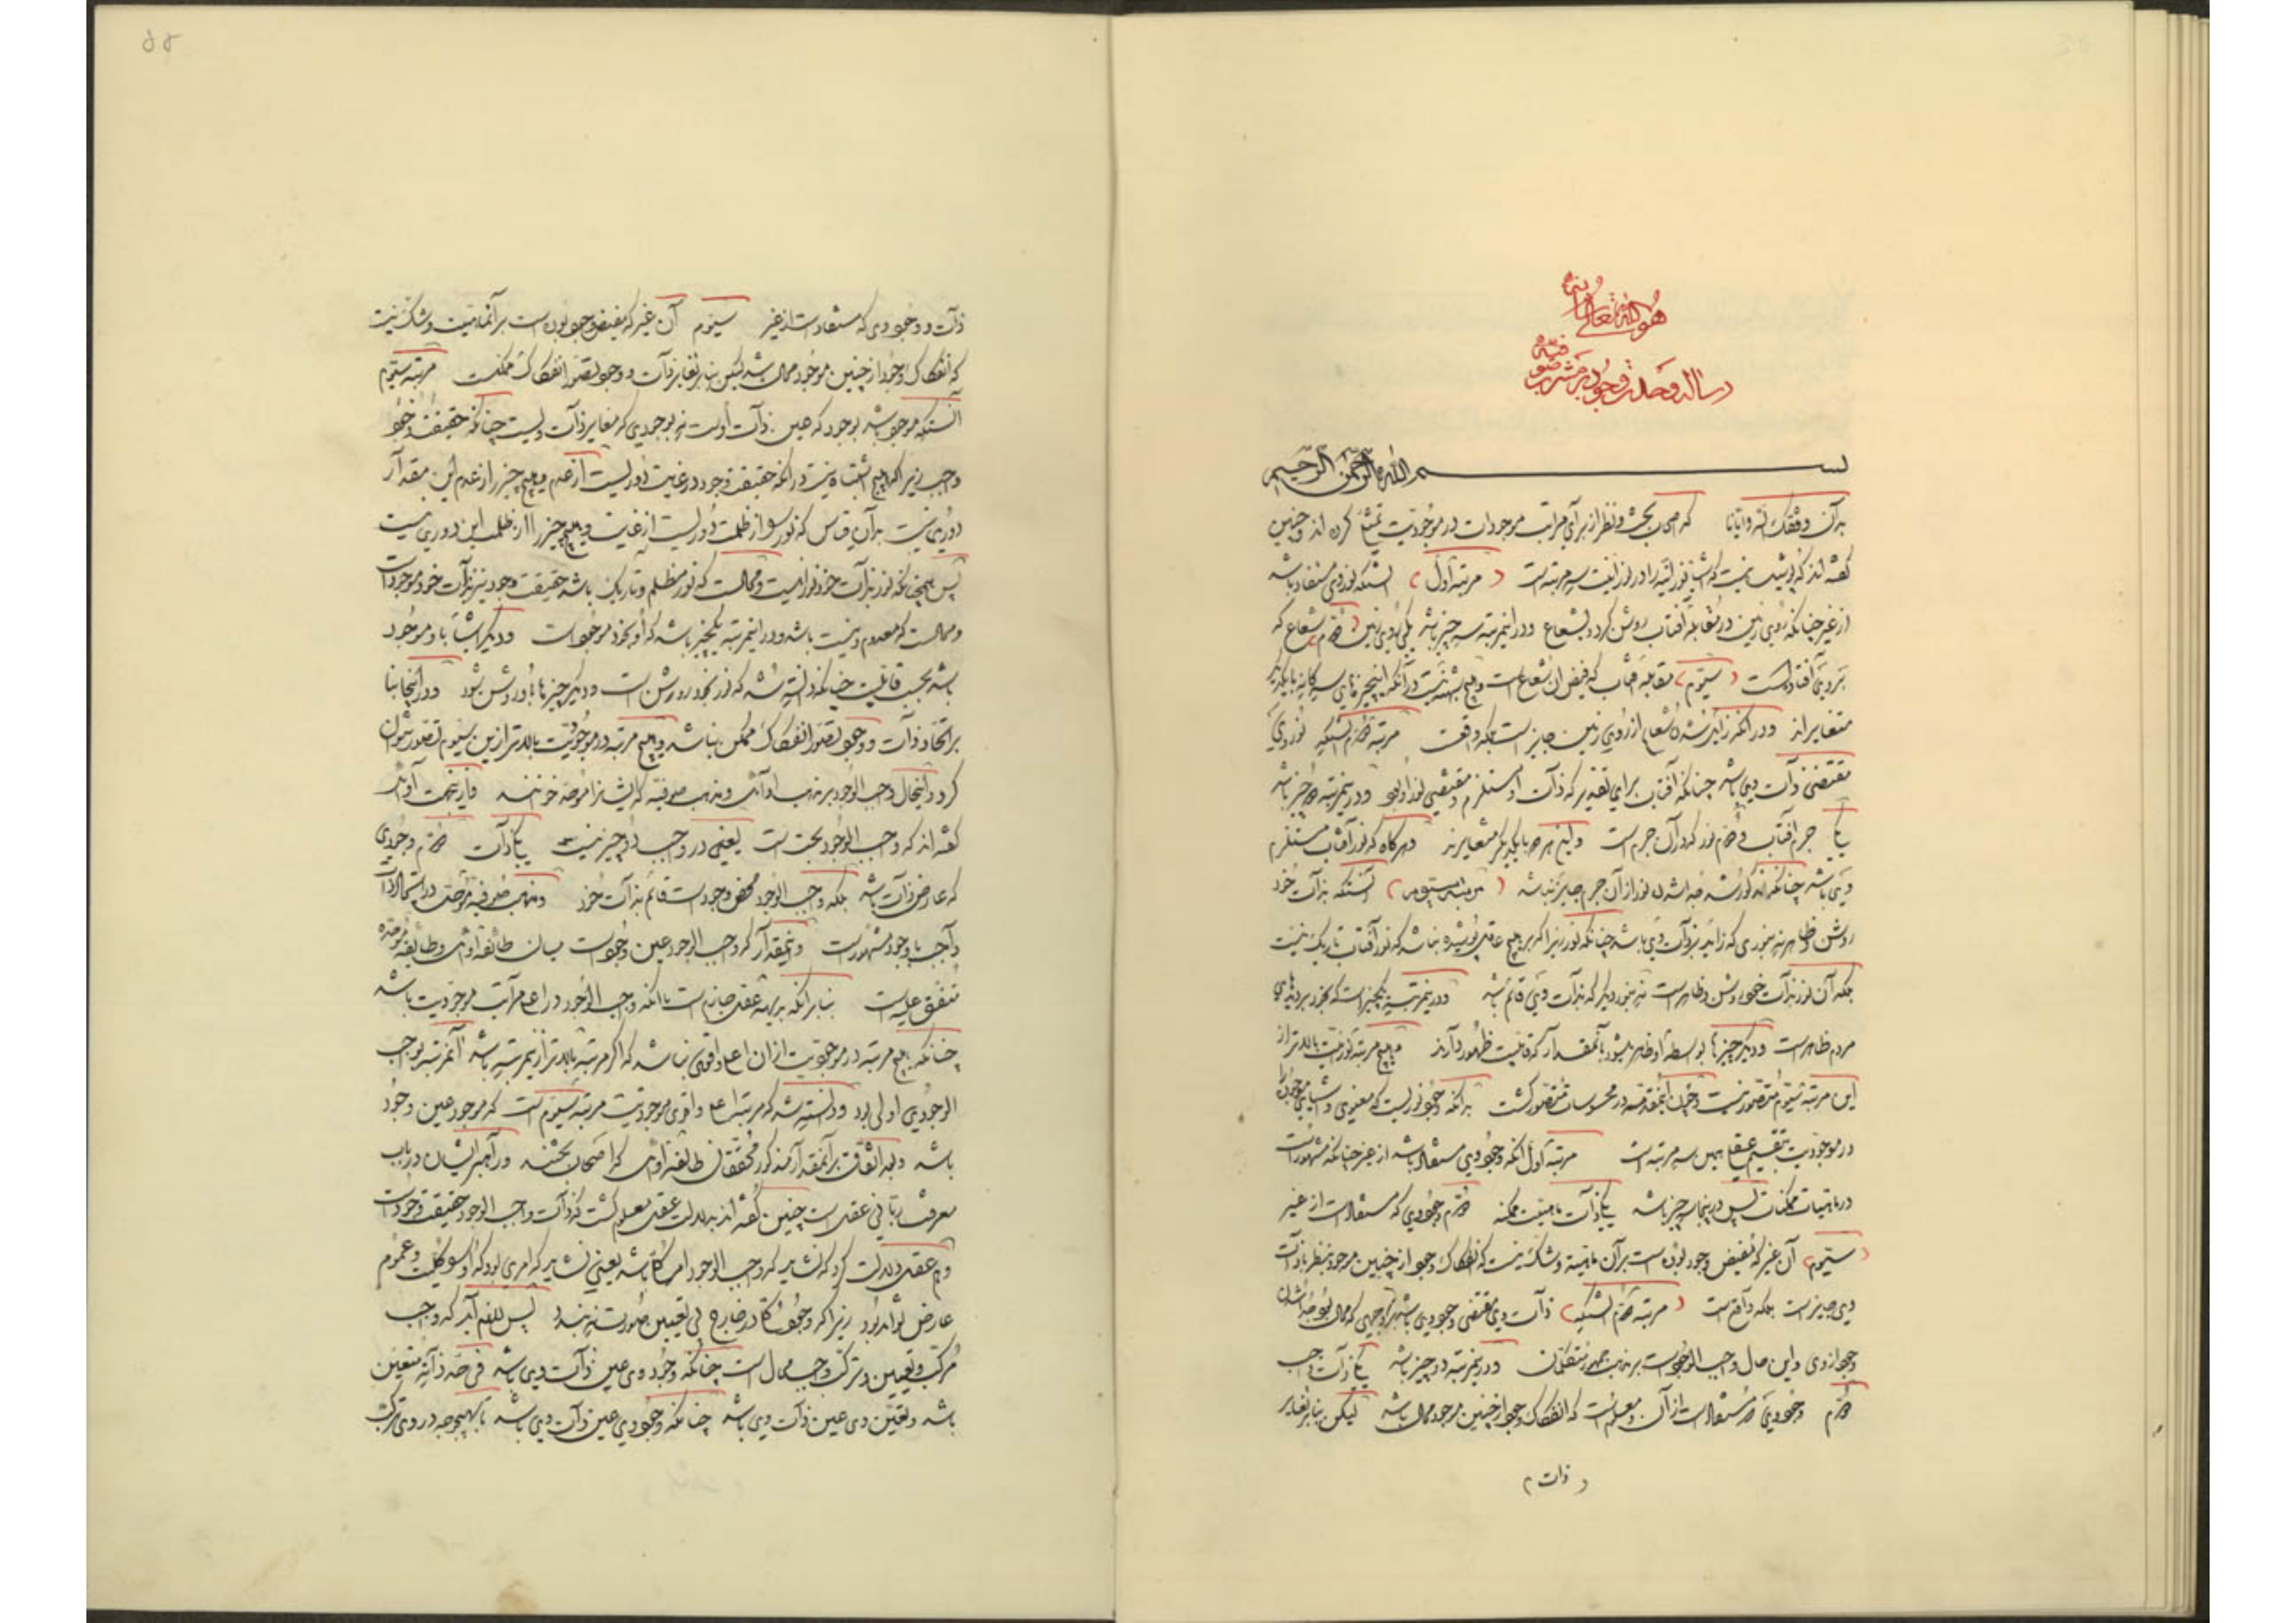 هو الله تعالی شانه
رساله وحدت وجود بر مشرب صوفیه
بسم الله الرحمن الرحیم
بدان وفقک الله وایانا که اصحاب بحث و نظر از برای مراتب موجودات در موجودیت تمثیل کرده اند و چنین
گفته اند که پوشیده نیست که اشیاء نورانیه را در نورانیت سه مرتبه است (مرتبه اول) آنستکه نور وی مستفاد باشد
از غیر چنانکه روی زمین در مقابله آفتاب روشن گردد بشعاع و در اینمرتبه سه چیز باشد یکی روی زمین (دوم) شعاع که
بر وی افتاده است (سیوم) مقابله آفتاب که مفیض آن شعاع است و هیچ شبهه نیست در آنکه اینچیزهای سه گانه با یکدیگر
متغایراند و در آنکه زایل شدن شعاع از روی زمین جایز است بلکه واقعست مرتبه دوم آنستکه نور وی
مقتضی ذات وی باشد چنانکه آفتاب برای تقدیر که ذات او مستلزم و مقتضی نور او بود و در ینمرتبه دو چیز باشد
یکی جرم آفتاب و دوم نور که در آن جرم است و این هر دو با یکدیگر متغایرند و هر گاه که نور آفتاب مستلزم
وی باشد چنانکه مذکور شد جدا شدن نور از آن جرم جایز نباشد (مرتبه سیوم) آنستکه بذات خود
روشن و ظاهر نه بنوری که زاید بر ذات وی باشد چنانکه نور زیرا که بر هیچ عاقلی پوشیده نباشد که نور آفتاب تاریک نیست
بلکه آن نور بذات خود روشن و ظاهر است نه بنور دیگر که بذات وی قائم باشد و در ینمرتبه یکچیز است که بخود بر دیدهای
مردم ظاهر است و دیگر چیزها بواسطه او ظاهر میشود بآنمقدار که قابلیت ظهور دارند و هیچ مرتبه نورانیت بالاتر از
این مرتبه سیوم متصور نیست و چون اینمقدمه در محسوسات متصور گشت بدانکه وجود نوریست معنوی و اشیای موجوده را
در موجودیت بتقسیم عقلی همین سه مرتبه است مرتبه اول آنکه وجود وی مستفاد باشد از غیر چنانکه مشهور است
در ماهیات ممکنات پس در اینجا سه چیز باشد یکی ذات ماهیت ممکنه دوم وجود وی که مستفاد است از غیر
(سیوم) آن غیر که مفیض وجود بوده است بر آن ماهیة و شک نیست که انفکاک وجود از چنین موجود بنظر با ذات
وی جایز است بلکه واقع است (مرتبه دوم آنستکه) ذات وی مقتضی وجود وی باشد بر وجهی که محال بود جدا شدن
وجود از وی و این حال واجب الوجود است بر مذهب جمهور متکلمان و در ینمرتبه دو چیز باشد یکی ذات واجب
دوم وجود وی که مستفاد است از آن و معلوم است که انفکاک وجود از چنین موجود محال باشد لیکن بنا بر تغایر
(ذات)
ذات و وجود وی که مستفاد است از غیر سیوم آن غیر که مفیض وجود بوده است بر آنماهیت و شک نیست
که انفکاک وجود از چنین موجود محال باشد لیکن بنا بر تغایر ذات و وجود تصور انفکاک ممکنست مرتبه سیوم
آنستکه موجود باشد بوجود که عین ذات اوست نه بوجودی که مغایر ذات ویست چنانکه حقیقت وجود
واجب زیرا که هیچ اشتباه نیست در آنکه حقیقت وجود در غایت دوریست از عدم و هیچ چیز را از عدم این مقدار
دوری نیست بر آن قیاس که نور از ظلمت دوریست از غایت و هیچ چیز را از ظلمت این دوری نیست
پس همچنانکه نور بذات خود نورانیست و محالست که نور مظلم و تاریک باشد حقیقت وجود نیز بذات خود موجود است
و محالست که معدوم و نیست باشد و در اینمرتبه یکچیز باشد که او بخود موجود است و دیگر اشیا با و موجود
باشد بحسب قابلیت چنانکه دانسته شد که نور بخود روشن است و دیگر چیزها باو روشن شود و در اینجا بنا
بر اتحاد ذات و وجود تصور انفکاک ممکن نباشد و هیچ مرتبه در موجودیت بالاتر ازین سیوم تصور نتوان
کرد و اینحال واجب الوجود بر مذهب حکما و مذهب صوفیه که ایشانرا موحد خوانند و ازینجهت
گفته اند که واجب الوجود بحت است یعنی در واجب دو چیز نیست یکی ذات دوم وجودی
که عارض ذات باشد بلکه واجب الوجود محض وجود است قائم بذات خود و مذهب صوفیه موحده در اتحاد ذات
واجب با وجود مشهور است و اینمقدار که واجب الوجود عین وجود است میان طائفه و طایفه موحده
متفق علیه است بنا بر آنکه بدیهه عقل جازم است بآنکه واجب الوجود در اعلی مراتب موجودیت باشد
چنانکه هیچ مرتبه در موجودیت از آن اعلی و اقوی نباشد که اگر مرتبه بالاتر از ینمرتبه باشد آنمرتبه بواجب
الوجودی اولی بود و دانسته شد که مرتبه اعلی و اقوی موجودیت مرتبه سیوم است که موجود عین وجود
باشد و بعد اتفاق بر آنمقدار مذکور محققان طائفه که اصحاب بحثند و راهبر ایشان در باب
معرفت ربانی عقل است چنین گفته اند بدلالت عقل معلوم گشت که ذات واجب الوجود حقیقت وجود است
و هم عقل دلالت کرد که نشاید که واجب الوجود امر کلی باشد یعنی نشاید که امری بود که او را کلیت و عموم
عارض تواند بود زیرا که وجود کلی در خارج بی تعین صورت نبندد پس لازم آید که واجب
مرکب و تعین و ترکب واجب محال است چنانکه وجود وی عین ذات وی باشد فی حد ذاته متعین
باشد و تعین وی عین ذات وی باشد چنانکه وجود وی عین ذات وی باشد تا بهیچوجه در وی ترکب